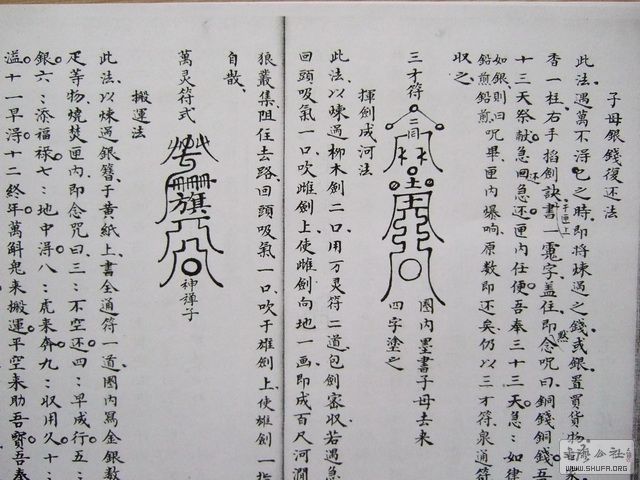 子母銀錢復还法
此法遇萬不得已之時即将煉過之錢或銀置買貨物
香一柱右手掐劍訣書一霓字盖住即念呪曰銅錢銅錢吾
于匣上
十三天祭献急回急还匣内任便吾奉三十三天急：如律
还
如銀則曰
鉛煎鉛煎呪畢匣内爆响原数即还矣仍以三才符
收之
三才符
圈内墨書子母去来
四字塗之
揮劍成河法
此法以煉過柳木劍二口用万灵符二道包劍密収若遇急
回頭吸氣一口吹雌劍上使雌劍向地一画即成百尺河澗
狼叢集阻住去路回頭吸氣一口吹于雄劍上使雄劍一指
自散
萬灵符式
神禪子
搬運法
此法以煉過銀簪子黄紙上書全通符一道圈内写金銀数
疋等物燒焚匣内即念咒曰三：不空还四：早成行五：
銀六：添福禄七：地中得八：虎来奔九：収用久十：
溢十一早得十二終年萬斛鬼来搬運平空来助吾寳吾奉
書法公社
WWW.SHUFA.ORG